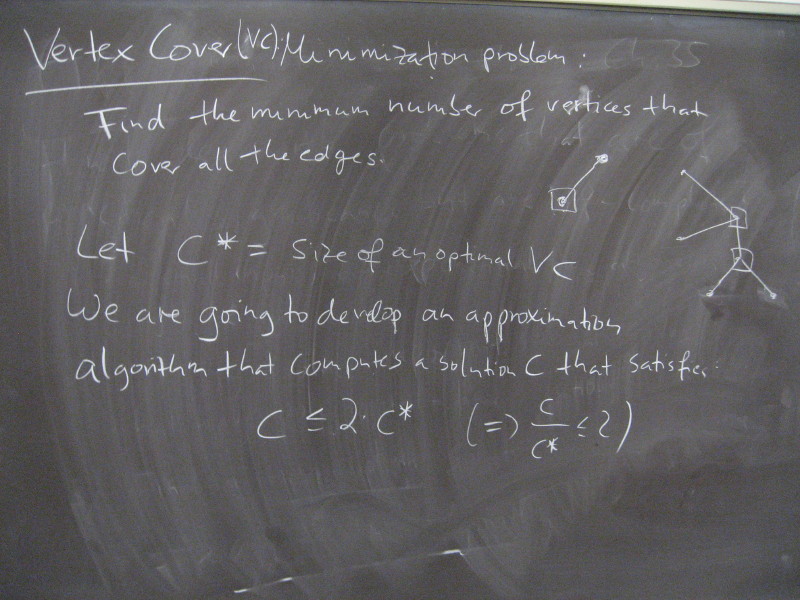 Vertex Cover (VC): Minimization problem: Ch 35
Find the minimum number of vertices that
Cover all the edges.
Let C* = Size of an optimal VC
We are going to develop an approximation
algorithm that computes a solution C that satisfies:
C ≤ 2·C* (=> C/C* ≤ 2)